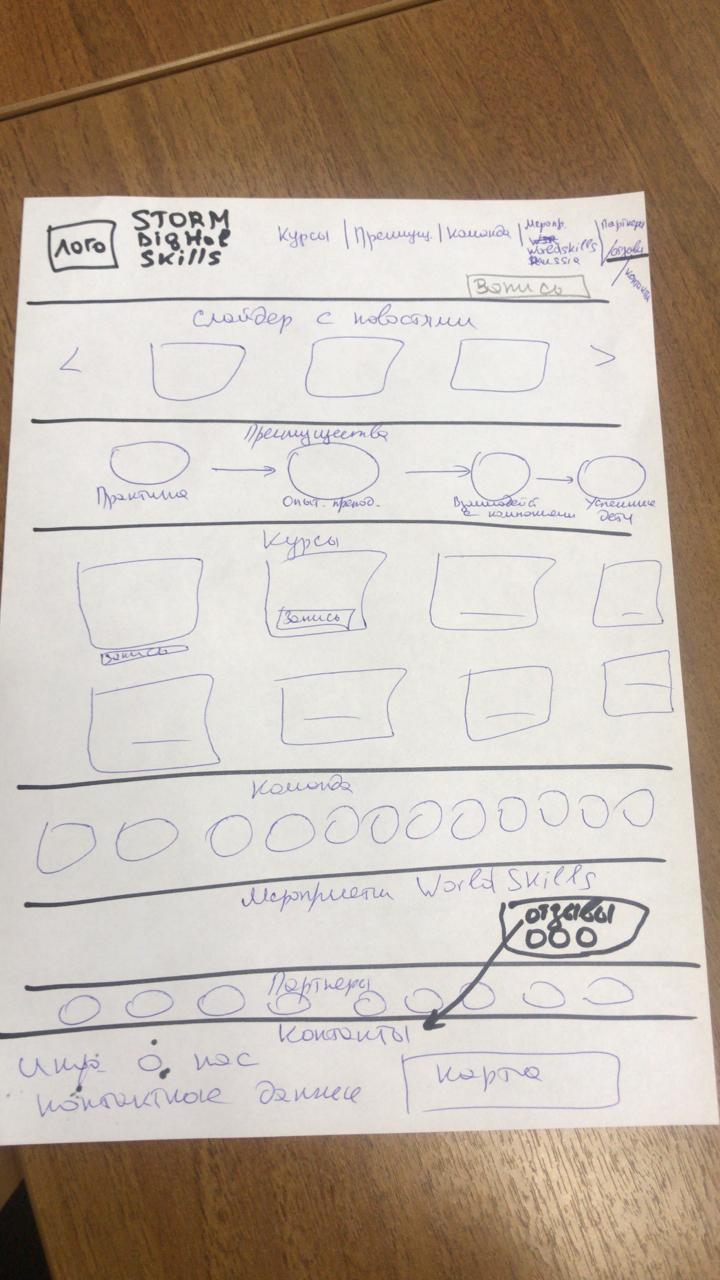 лого
STORM
Digital
Skills
Курсы | Преимущ. | Команда | Меропр. | Партнеры
Worldskills
Russia
/ отзывы
/ контакты
Запись
Слайдер с новостями
< >
Преимущества
Практика
Опыт. препод.
Взаимодейст
с компаниями
Успешные
дети
Курсы
Запись
Запись
Команда
Мероприятия World Skills
отзывы
Партнеры
Контакты
Инфа о нас
контактные данные
карта